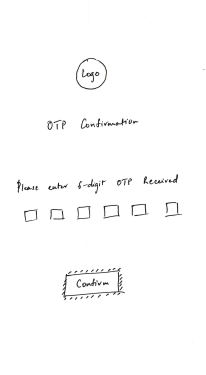 Logo
OTP Confirmation
Please enter 6-digit OTP Received
Confirm